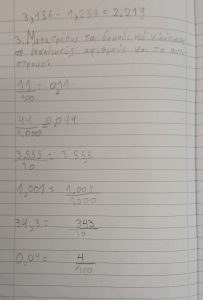 3,456 - 1,237 = 2,219
3. Μετατρέπω τα δεκαδικά κλάσματα
σε δεκαδικούς αριθμούς και το αντί
στροφο:
11/100 = 0,11
44/1.000 = 0,044
3.555/10 = 355,5
1,001 = 1.001/1000
34,3 = 343/10
0,04 = 4/100